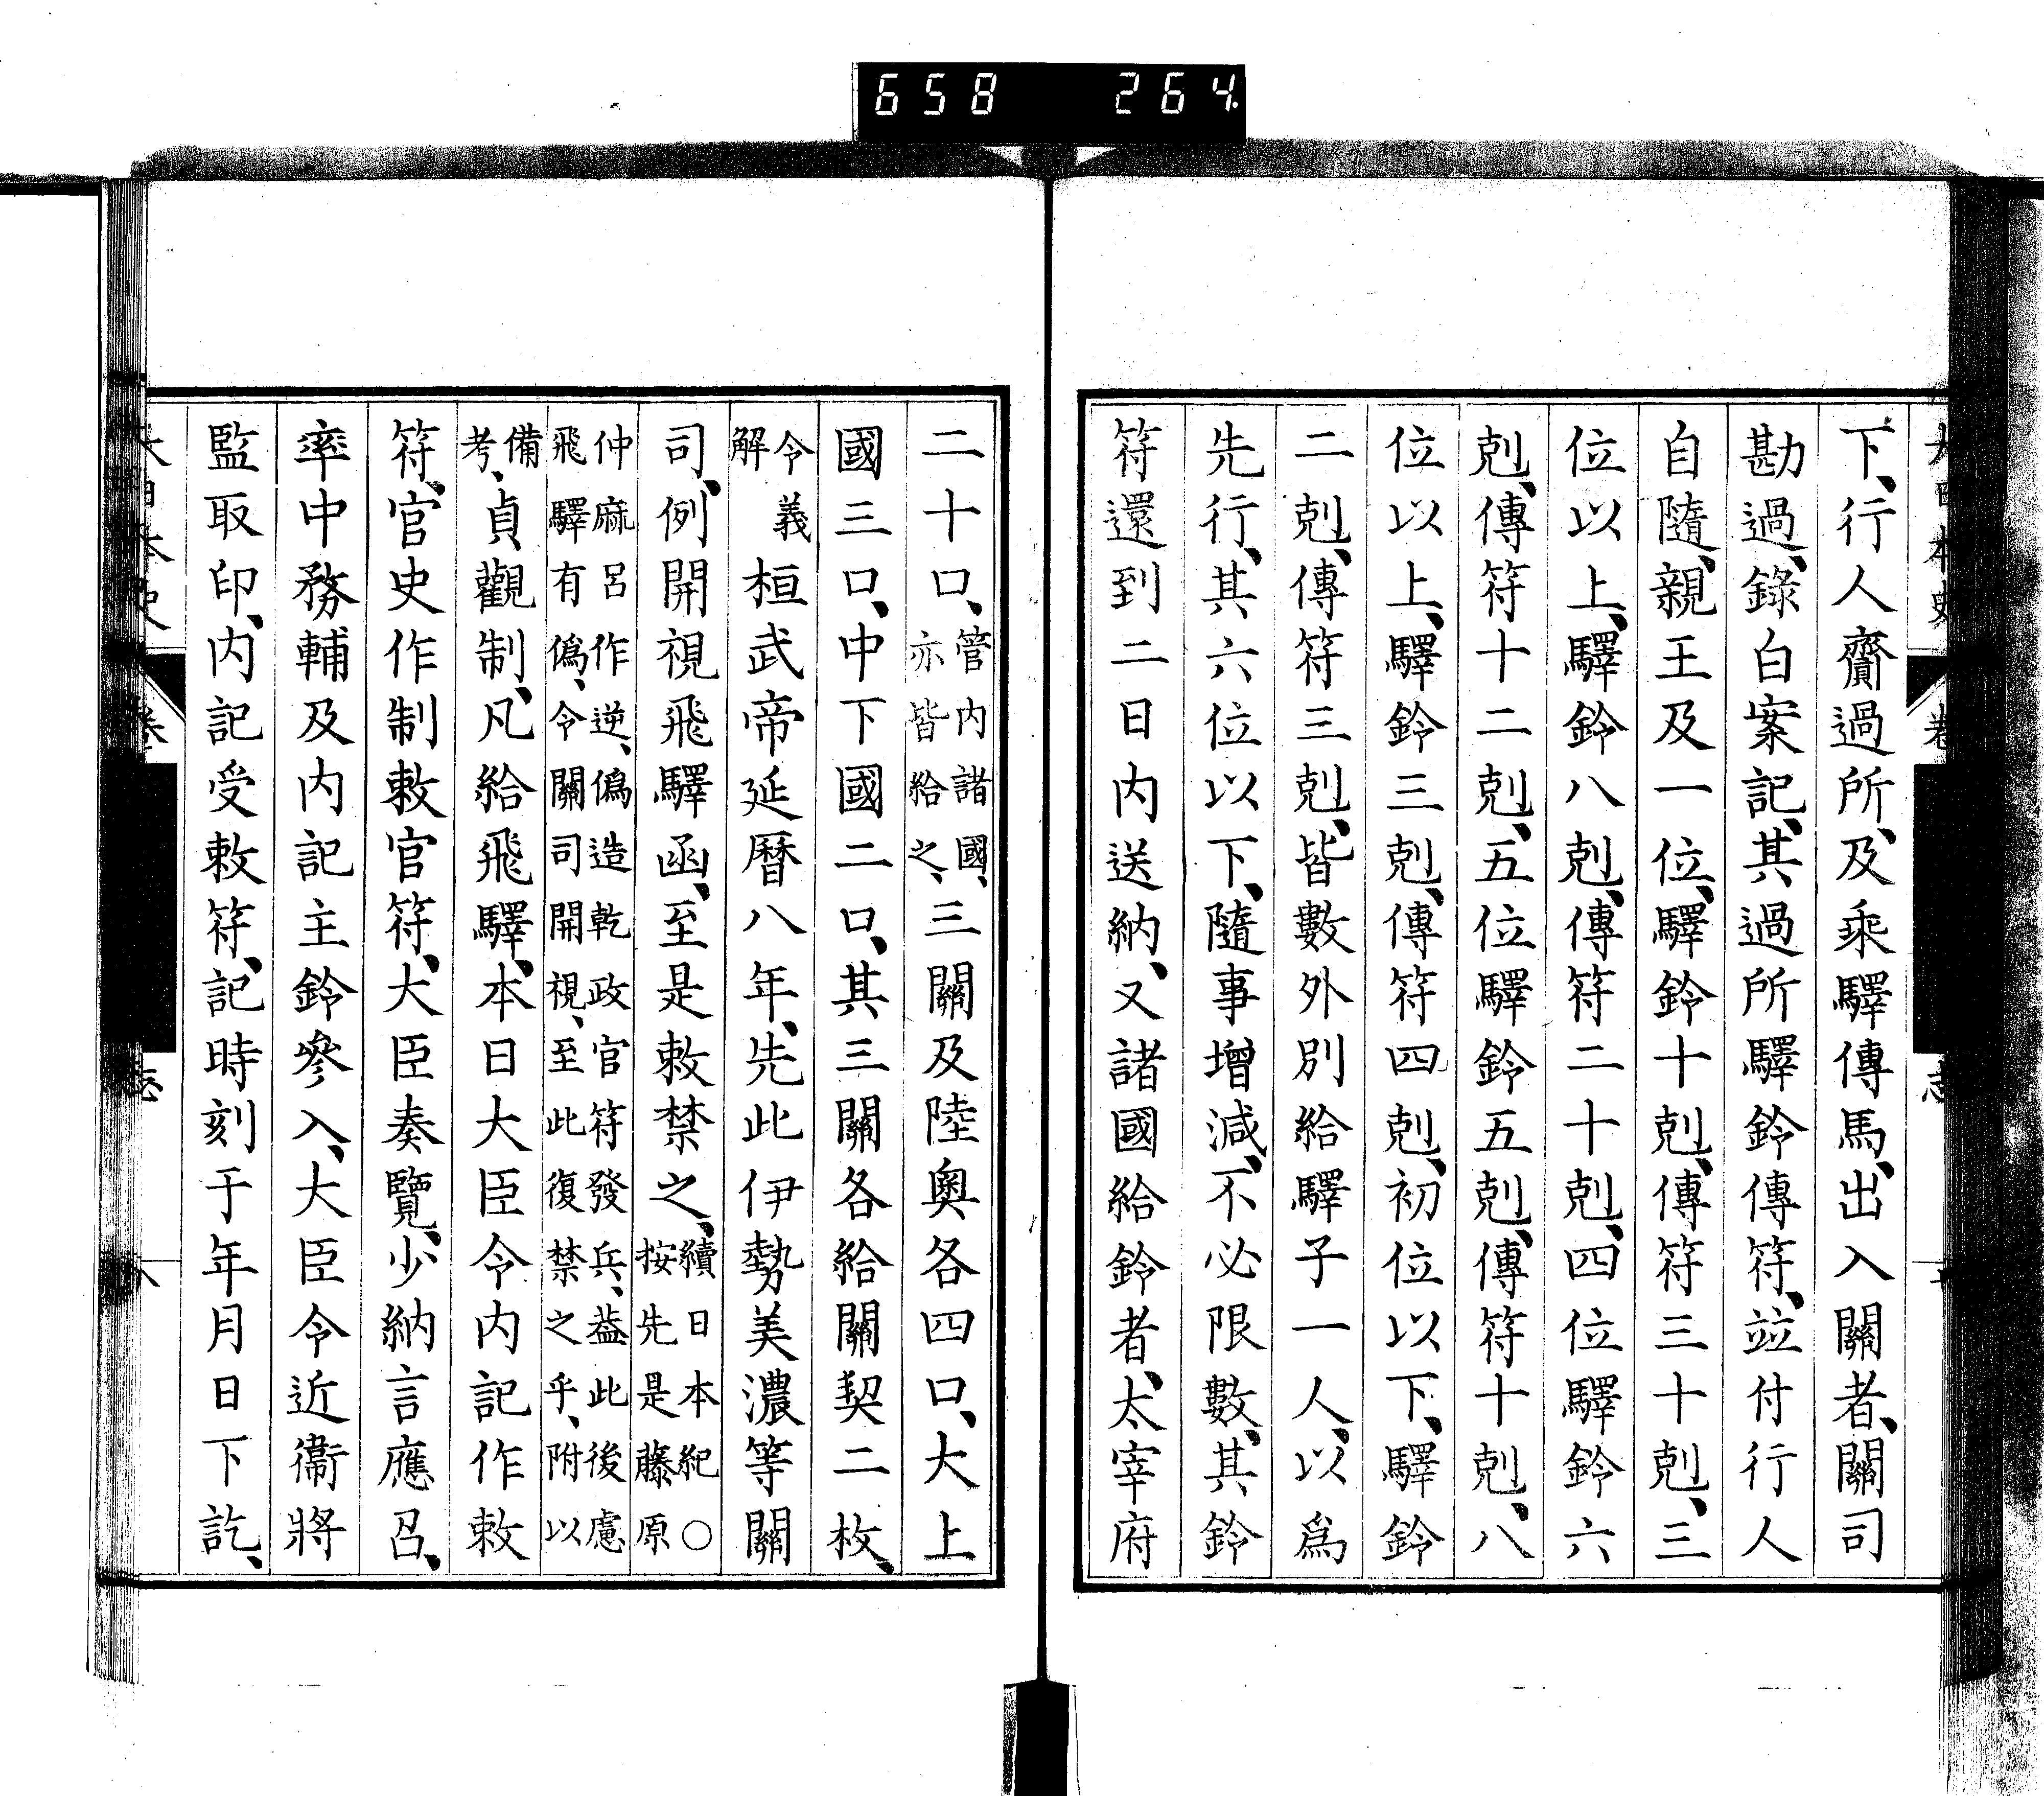 658 264
下、行人齎過所、及乘驛傳馬、出入關者、關司
勘過、錄白案記、其過所驛鈴傳符、竝付行人
自隨、親王及一位、驛鈴十剋、傳符三十剋、三
位以上、驛鈴八剋、傳符二十剋、四位驛鈴六
剋、傳符十二剋、五位驛鈴五剋、傳符十剋、八
位以上、驛鈴三剋、傳符四剋、初位以下、驛鈴
二剋、傳符三剋、皆數外別給驛子一人、以爲
先行、其六位以下、隨事增減、不必限數、其鈴
符還到二日內送納、又諸國給鈴者、太宰府
二十口、管内諸國、亦皆給之、三關及陸奧各四口、大上
國三口、中下國二口、其三關各給關契二枚、
令義解桓武帝延曆八年、先此伊勢美濃等關
司、例開視飛驛函、至是敕禁之、續日本紀○按先是藤原
仲麻呂作逆、偽造乾政官符發兵、葢此後慮飛驛有偽、令關司開視、至此復禁之乎、附以
備考、貞觀制、凡給飛驛、本日大臣令內記作敕
符、官史作制敕官符、大臣奏覽、少納言應召、
率中務輔及內記主鈴參入、大臣令近衞將
監取印、內記受敕符、記時刻于年月日下訖、
大日本史 卷 志